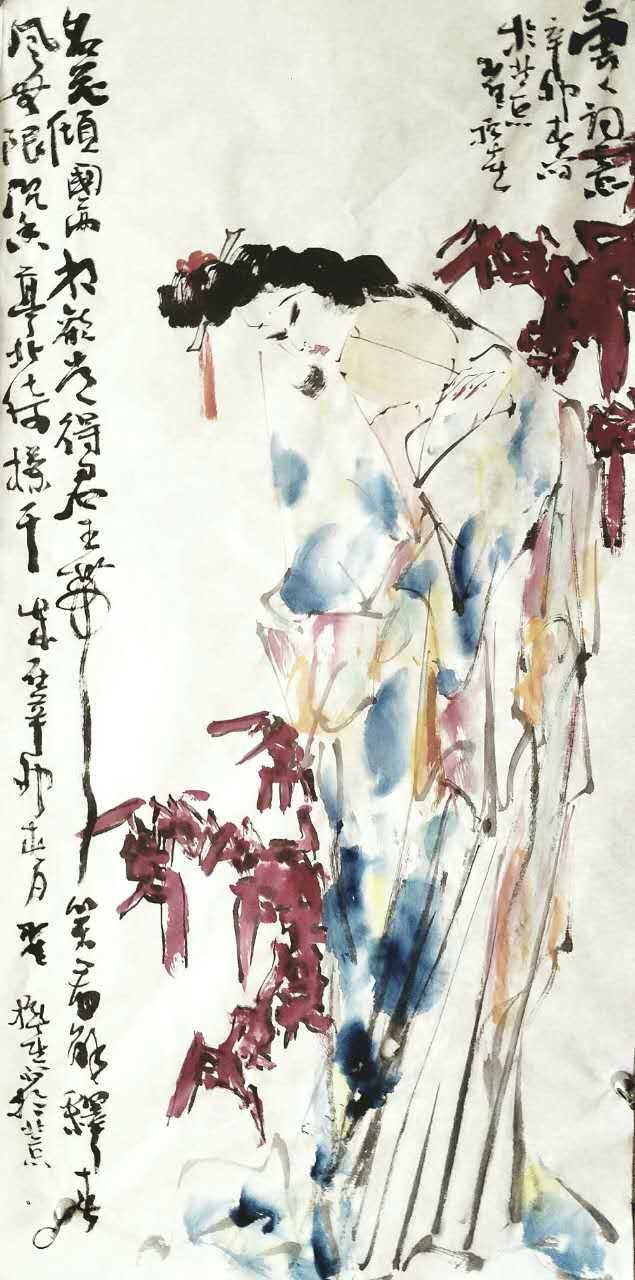 詞意
辛卯春月
於北京
名花傾國兩相歡常得君王帶笑看解釋春
風無限沉香亭北倚欄干歲在辛卯春月
於北京